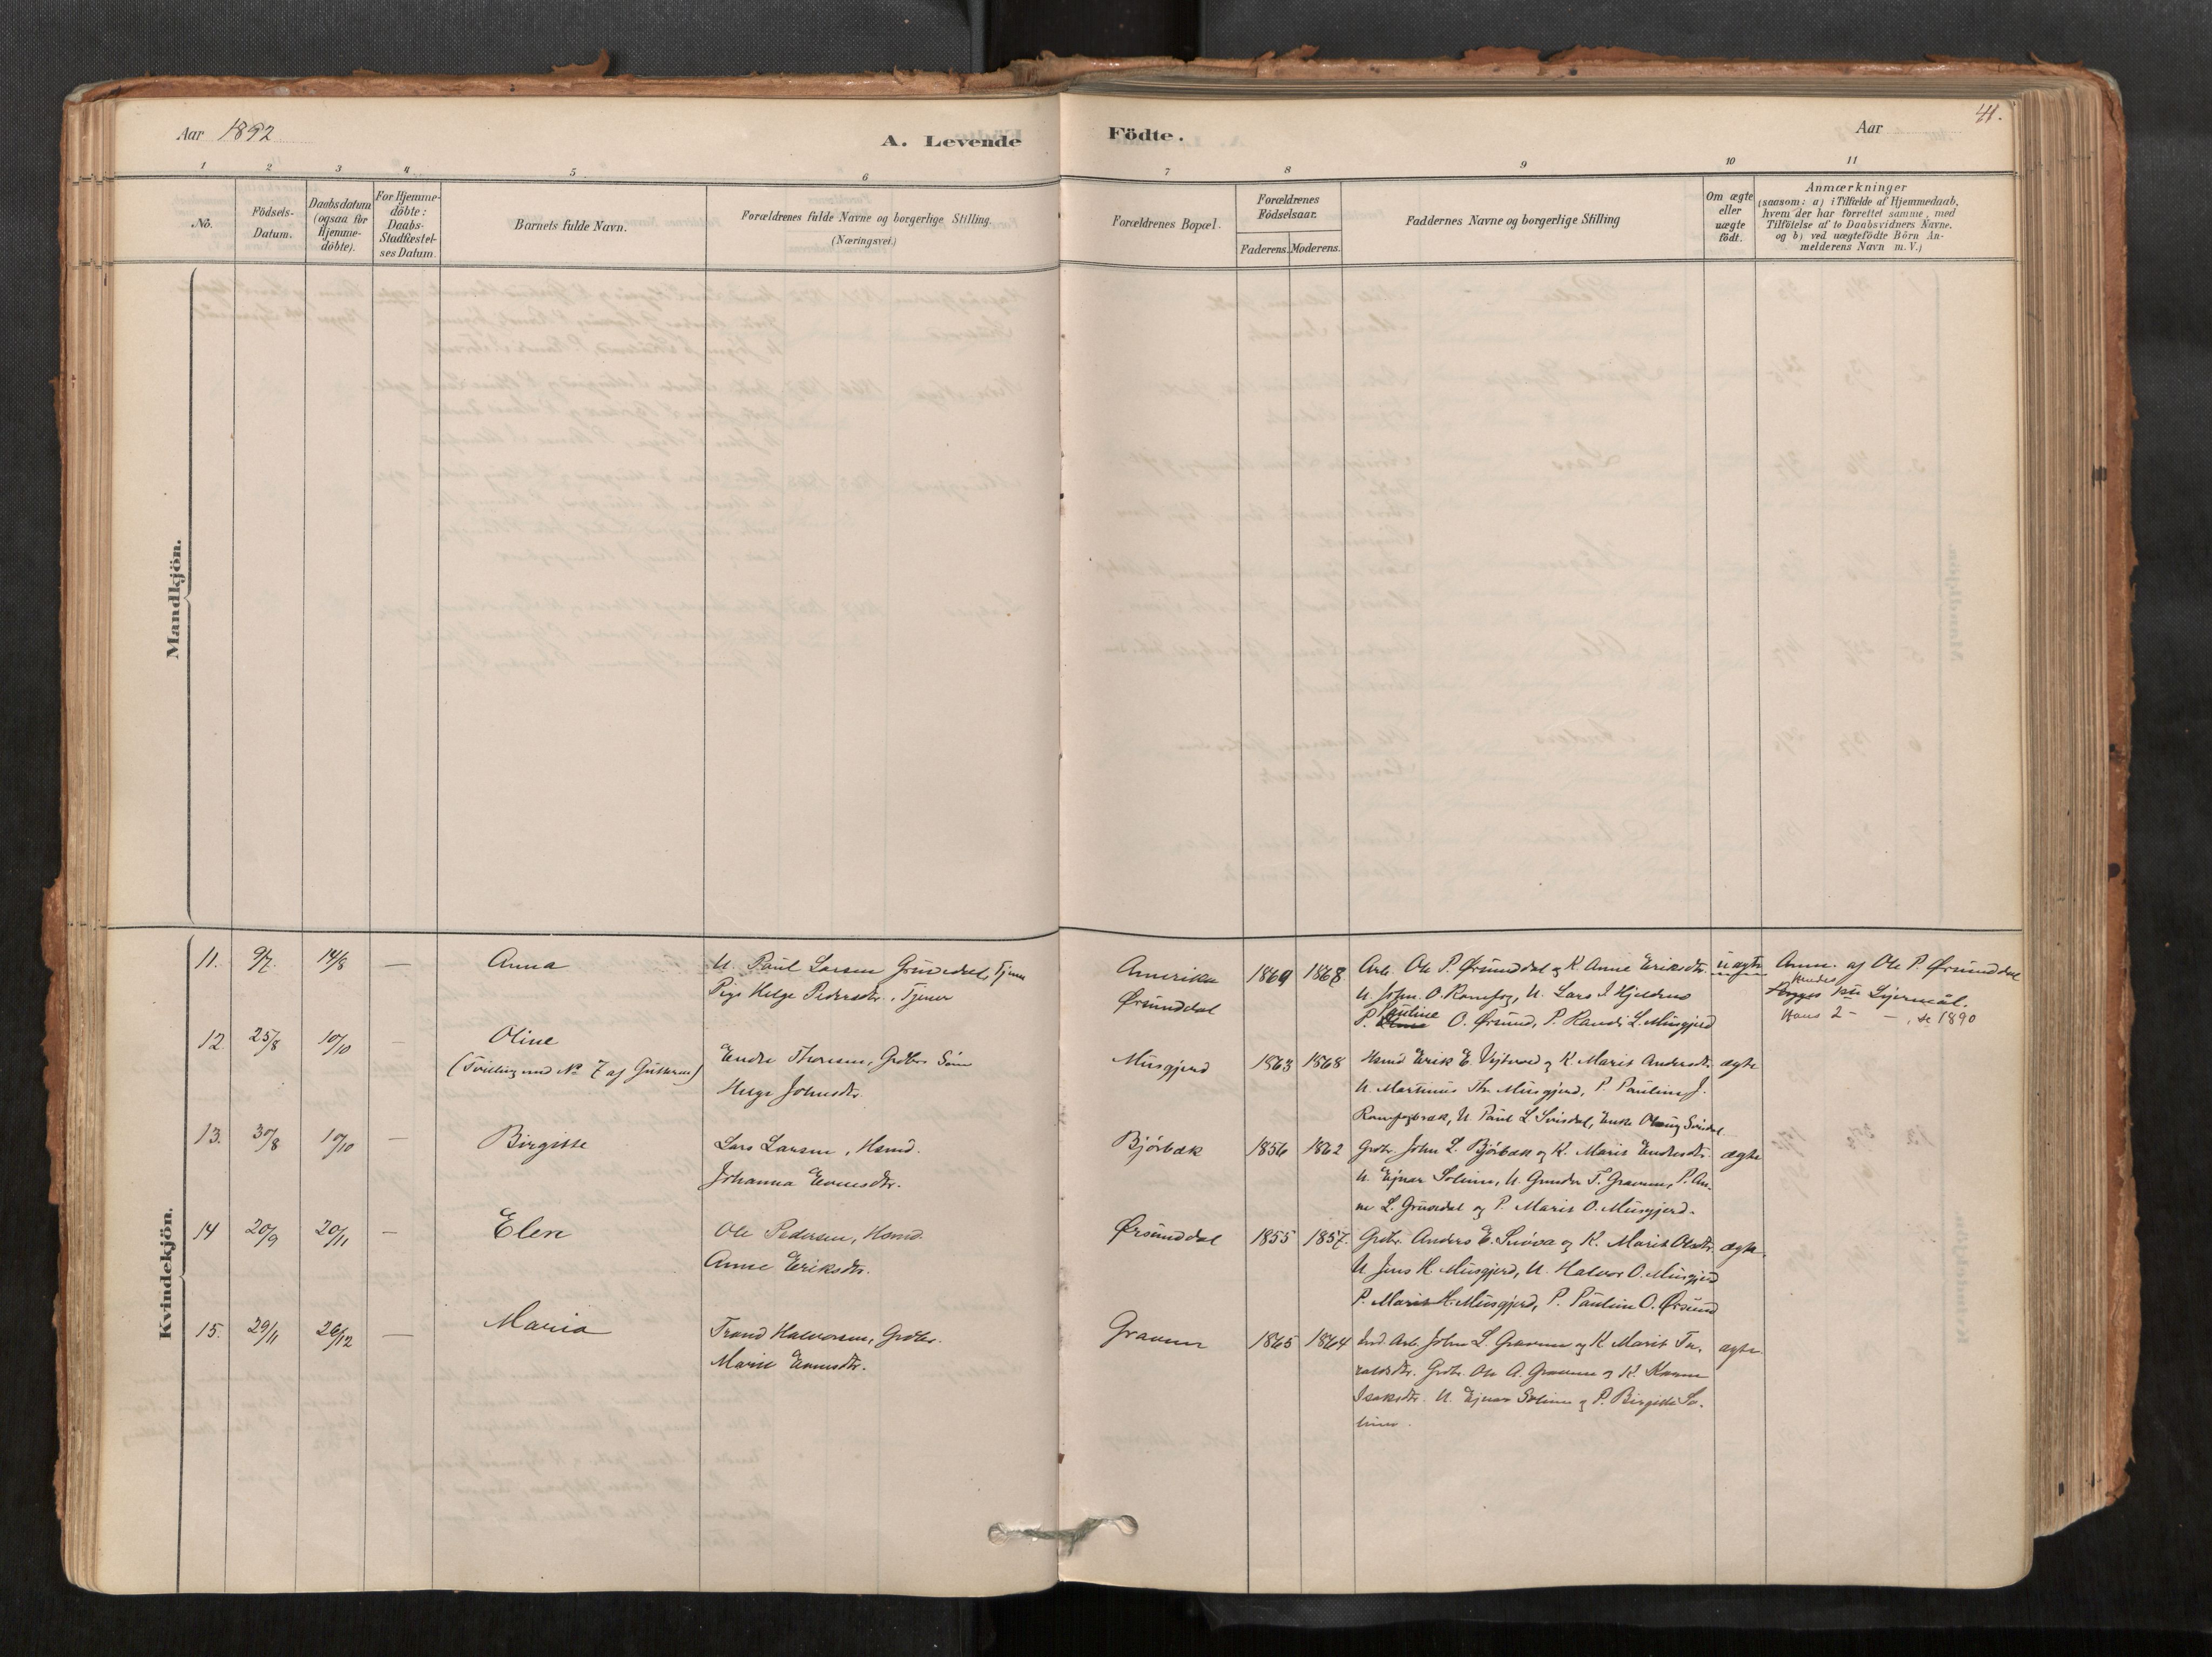 Aar 1892
A. Levende
Födte.
Aar
41.
1 2 3 4 5 6 7 8 9 10 11
No.
Födsels-
Datum.
Daabsdatum
(ogsaa for
Hjemme-
döbte).
For Hjemme-
döbte:
Daabs-
Stadfæstel-
ses Datum.
Barnets fulde Navn.
Forældrenes fulde Navne og borgerlige Stilling.
(Næringsvei.)
Forældrenes Bopæl.
Forældrenes
Födselsaar.
Faderens. Moderens.
Faddernes Navne og borgerlige Stilling
Om ægte
eller
uægte
födt.
Anmærkninger
(saasom: a) i Tilfælde af Hjemmedaab,
hvem der har forrettet samme, med
Tilföielse af to Daabsvidners Navne.
og b) ved uægtefödte Börn An-
melderens Navn m. V.)
Mandkjön.
Kvindekjön.
11. 9/7. 14/8 — Anna
U. Paul Larsen Grusedal, Tjener
Pige Helge Pedersdtr., Tjener
Amerika
Ørsunddal
1869 1868
Arb. Ole P. Ørsunddal og K. Anne Eriksdtr.
U. John O. Ramsøg, U. Lars J. Hjeldnes
P. Pauline O. Ørsund, P. Randi L. Musgjerd
uægte
Anm. af Ole P. Ørsunddal
Hendes 1ste Leiermål.
Hans 2 - - , se 1890
12. 25/8 10/10 — Oline
(Tvilling med No 7 af Guttene)
Endre Thoresen, Grdbr. Søn
Helge Johnsdtr.
Musgjerd
1863 1868
Hsmd Erik E. Vejtvod og K. Marit Andersdtr.
U. Martinus Th. Musgjerd, P. Pauline J.
Ramsøgbræk, U. Paul L. Svisdal, Enke Olaug Svisdal
ægte
13. 30/8 10/10 — Birgitte
Lars Larsen, Hsmd.
Johanna Evensdtr.
Bjørbæk
1856 1862
Grdbr. John L. Bjørbæk og K. Marit Endresdtr.
U. Ejnar Solem, U. Gunder T. Gravem, P. An-
ne L. Grusedal og P. Marit O. Musgjerd.
ægte
14 20/9 20/11 — Elen
Ole Pedersen, Hsmd.
Anne Eriksdtr.
Ørsunddal
1855 1857.
Grdbr. Anders E. Snøva og K. Marit Olsdtr.
U. Jens H. Musgjerd, U. Halvor O. Musgjerd
P. Marit H. Musgjerd, P. Pauline O. Ørsund
ægte
15. 29/11 26/12 — Maria
Trond Halvorsen, Grdbr.
Marit Evensdtr.
Gravem
1865 1864
Ind. Arb. John L. Gravem og K. Marit To-
raldsdtr. Grdbr. Ole A. Gravem og K. Karen
Isaksdtr. U. Ejnar Solem og P. Birgitte So-
lem.
ægte.